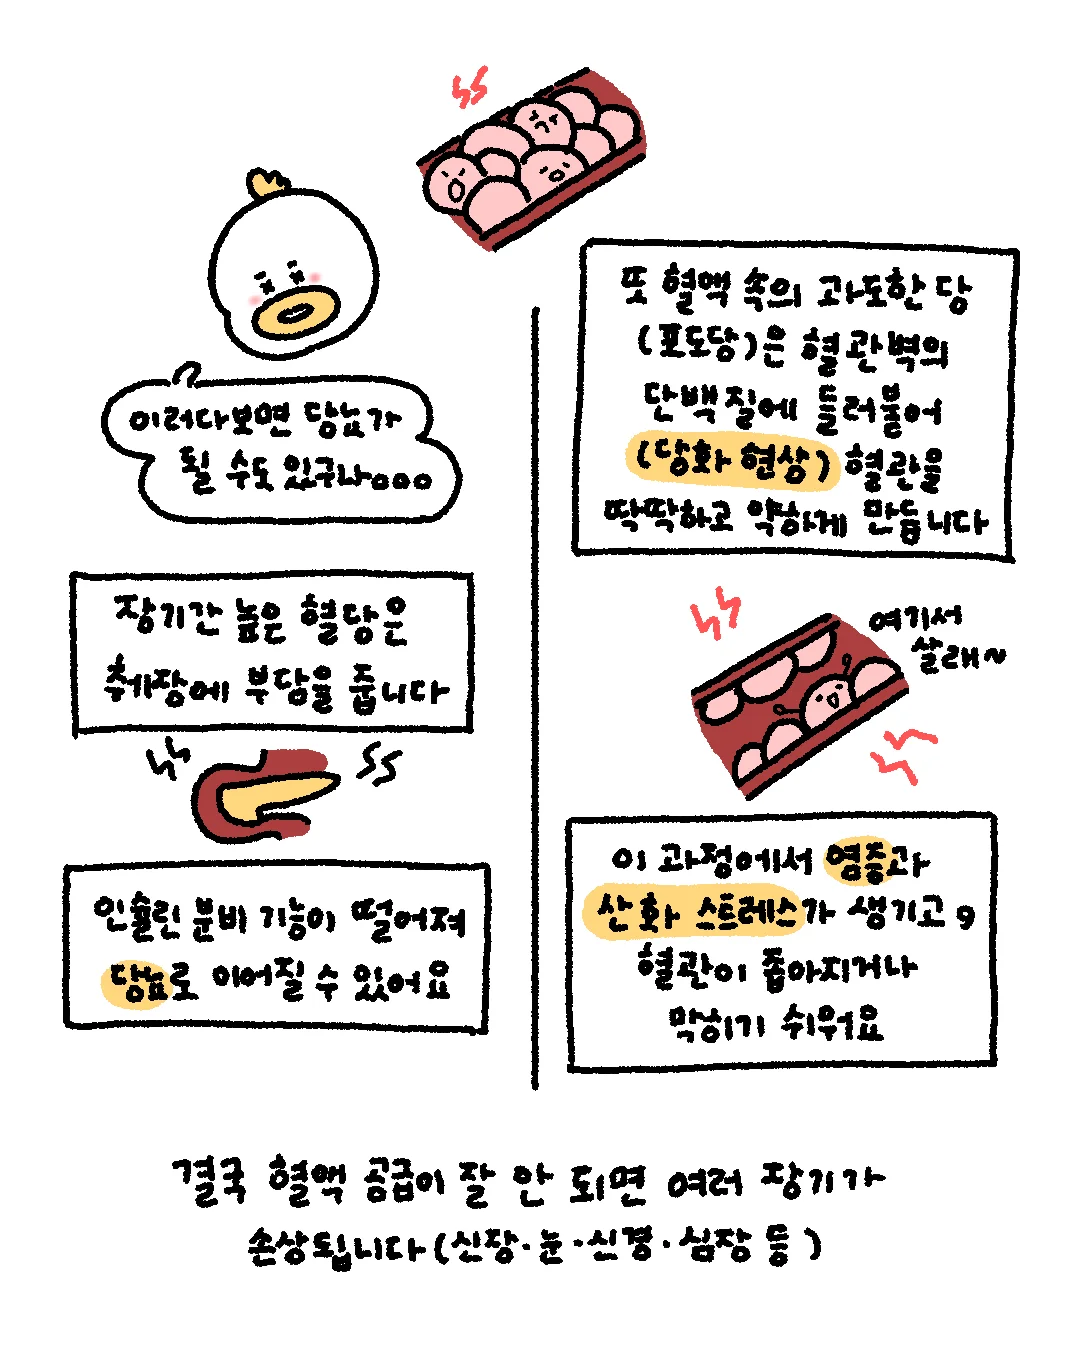 이러다보면 당뇨가
될 수도 있구나ooo
장기간 높은 혈당은
췌장에 부담을 줍니다
인슐린 분비 기능이 떨어져
당뇨로 이어질 수 있어요
또 혈액 속의 과도한 당
(포도당)은 혈관벽의
단백질에 들러붙어
(당화 현상) 혈관을
딱딱하고 약하게 만듭니다
여기서
살래~
이 과정에서 염증과
산화 스트레스가 생기고,
혈관이 좁아지거나
막히기 쉬워요
결국 혈액 공급이 잘 안 되면 여러 장기가
손상됩니다(신장·눈·신경·심장 등)